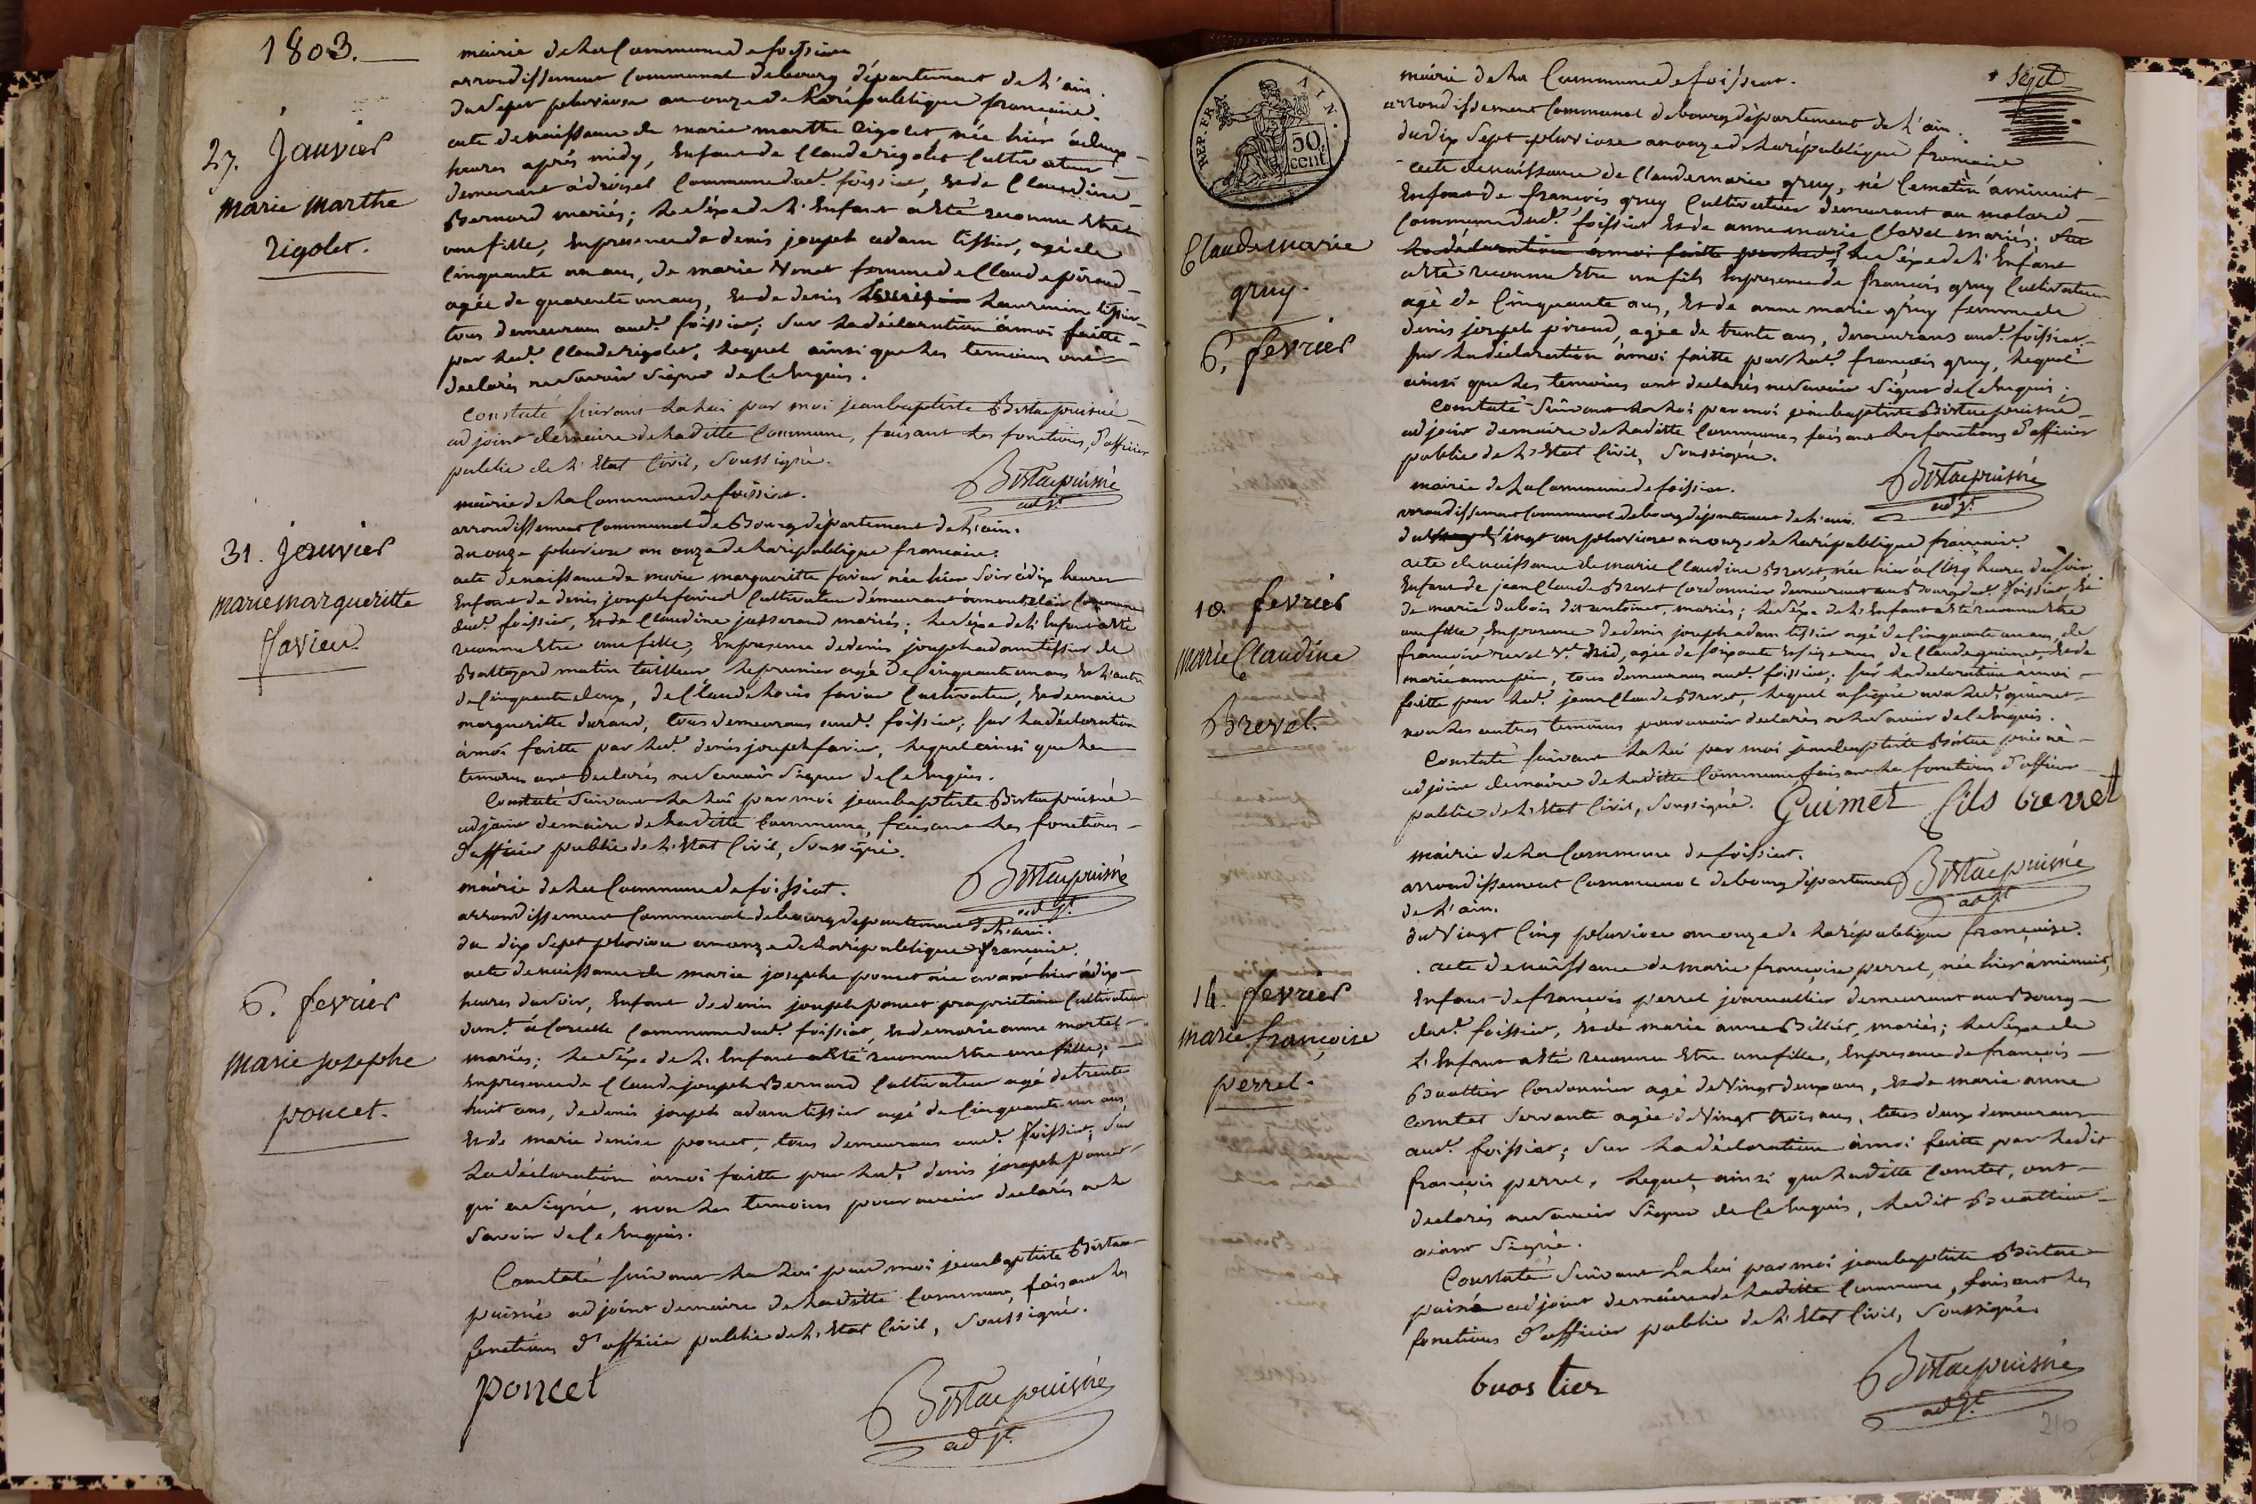 1803.
mairie de la Commune de foissiat
arrondissement Communal de bourg département de l'ain.
du Sept pluviose an onze de la république francaise.
27. Janvier
Marie Marthe
rigolet.
acte de naissance de marie marthe rigolet née hier à
heures après midy, Enfant de Claude rigolet Cultivateur
demeurant à Commune dud. foissiat, et de Claudine
Bernard mariés; le Sexe de l'Enfant a Eté reconnu Etre
une fille, En presence de denis joseph adam tissier, agé de
Cinquante un ans, de marie femme de Claude piroud
agée de quarente un ans, Et de denis laurin tissier
tous demeurans aud. foissiat; Sur la déclaration à moi faitte
par led. Claude rigolet, lequel ainsi que les temoins ont
declarés ne Savoir Signer de Ce Enquis.
Constaté Suivant la loi par moi jean baptiste Bistac puisné
adjoint de maire de la ditte Commune, faisant les fonctions, d'officier
public de l'Etat Civil, Soussigné.
Bistac puisné
adjt.
mairie de la Commune de foissiat.
arrondissement Communal de Bourg département de l'ain.
du onze pluviose an onze de la république francaise.
31. Janvier
Marie Margueritte
favier.
acte de naissance de marie margueritte favier née hier Soir à dix heures
Enfant de denis joseph favier Cultivateur demeurant à Commune
dud. foissiat, Et de Claudine josserand mariés; le Sexe de l'Enfant a Eté
reconnu Etre une fille, En presence de denis joseph adam tissier de
matin tailleur le premier agé de Cinquante un ans Et l'autre
de Cinquante deux, de Claude Louis favier Cultivateur, Et de marie
margueritte durand, tous demeurans aud. foissiat; Sur la déclaration
à moi faitte par led. denis joseph favier, lequel ainsi que les
temoins ont declarés ne Savoir Signer de Ce Enquis.
Constaté Suivant la loi par moi jean baptiste Bistac puisné
adjoint de maire de la ditte Commune, faisant les fonctions
d'officier public de l'Etat Civil, Soussigné.
Bistac puisné
adjt.
mairie de la Commune de foissiat.
arrondissement Communal de bourg departement de l'ain.
du dix Sept pluviose an onze de la république francaise.
6. fevrier
Marie josephe
poncet.
acte de naissance de marie josephe poncet née avant hier à dix
heures du Soir, Enfant de denis joseph poncet proprietaire Cultivateur
demt. à Commune dud. foissiat, Et de marie anne martel
mariés; le Sexe de l'Enfant a Eté reconnu Etre une fille;
En presence de Claude joseph Bernard Cultivateur agé de trente
huit ans, de denis joseph adam tissier agé de Cinquante un ans
Et de marie denise poncet, tous demeurans aud. foissiat, Sur
la déclaration à moi faitte par led. denis joseph poncet
qui a Signé, non les temoins pour avoir declarés ne le
Savoir de Ce Enquis.
Constaté Suivant la loi par moi jean baptiste Bistac
puisné adjoint de maire de la ditte Commune, faisant les
fonctions d'officier public de l'Etat Civil, Soussigné.
poncet
Bistac puisné
adjt.
Sept
REP. FRA. AIN.
50 cent
mairie de la Commune de foissiat.
arrondissement Communal de bourg département de l'ain.
du dix Sept pluviose an onze de la république francaise
Claude Marie
gruy.
6. fevrier
acte de naissance de Claude marie gruy, né Ce matin à minuit
Enfant de francois gruy Cultivateur demeurant au molard
Commune dud. foissiat Et de anne marie Clavel mariés;
la déclaration à moi faitte par led. le Sexe de l'Enfant
a Eté reconnu Etre un fils En presence de francois gruy Cultivateur
agé de Cinquante ans, Et de anne marie gruy femme de
denis joseph piroud, agée de trente ans, demeurans aud. foissiat
Sur la déclaration à moi faitte par led. francois gruy, lequel
ainsi que les temoins ont declarés ne Savoir Signer de Ce Enquis.
Constaté Suivant la loi par moi jean baptiste Bistac puisné
adjoint de maire de la ditte Commune, faisant les fonctions d'officier
public de l'Etat Civil, Soussigné.
Bistac puisné
adjt.
mairie de la Commune de foissiat.
arrondissement Communal de bourg département de l'ain.
du Vingt un pluviose an onze de la république francaise.
10. fevrier
Marie Claudine
Brevet.
acte de naissance de marie Claudine Brevet, née hier à Cinq heures du Soir
Enfant de jean Claude Brevet Cordonnier demeurant au Bourg dud. foissiat, Et
de marie dubois dit antoinet, mariés; le Sexe de l'Enfant a Eté reconnu Etre
une fille, En presence de denis joseph adam tissier agé de Cinquante un ans, de
francoise revel Ve. agée de soixante Et seize ans de Claude guimet, Et de
marie anne tous demeurans aud. foissiat; Sur la déclaration à moi
faitte par led. jean Claude Brevet, lequel a Signé avec led. guimet
non les autres temoins pour avoir declarés ne le Savoir de Ce Enquis.
Constaté Suivant la loi par moi jean baptiste Bistac puisné
adjoint de maire de la ditte Commune faisant les fonctions d'officier
public de l'Etat Civil, Soussigné.
Guimet fils brevet
Bistac puisné
adjt
mairie de la Commune de foissiat.
arrondissement Communal de bourg département
de l'ain.
du Vingt Cinq pluviose an onze de la république françoise.
14. fevrier
Marie françoise
perret.
acte de naissance de marie françoise perret, née hier à minuit,
Enfant de francois perret journallier demeurant au Bourg
dud. foissiat, Et de marie anne Billiet, mariés; le Sexe de
l'Enfant a Eté reconnu Etre une fille, En presence de francois
Buattier Cordonnier agé de Vingt deux ans, Et de marie anne
Comtet Servante agée de Vingt trois ans, tous deux demeurans
aud. foissiat; Sur la déclaration à moi faitte par ledit
françois perret, lequel, ainsi que la ditte Comtet, ont
declarés ne Savoir Signer de Ce Enquis, ledit Buattier
aiant Signé.
Constaté Suivant la loi par moi jean baptiste Bistac
puisné adjoint de maire de la ditte Commune, faisant les
fonctions d'officier public de l'Etat Civil, Soussigné.
buattier
Bistac puisné
adjt.
210